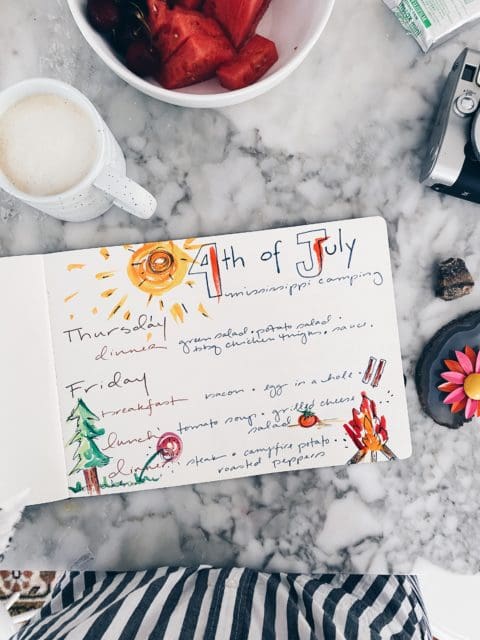 4th of July
mississippi camping
Thursday
dinner green salad • potato salad •
bbq chicken thighs • saus.
Friday
breakfast bacon • egg in a hole •
lunch: tomato soup • grilled cheese
salad
dinner: steak • campfire potato
roasted peppers